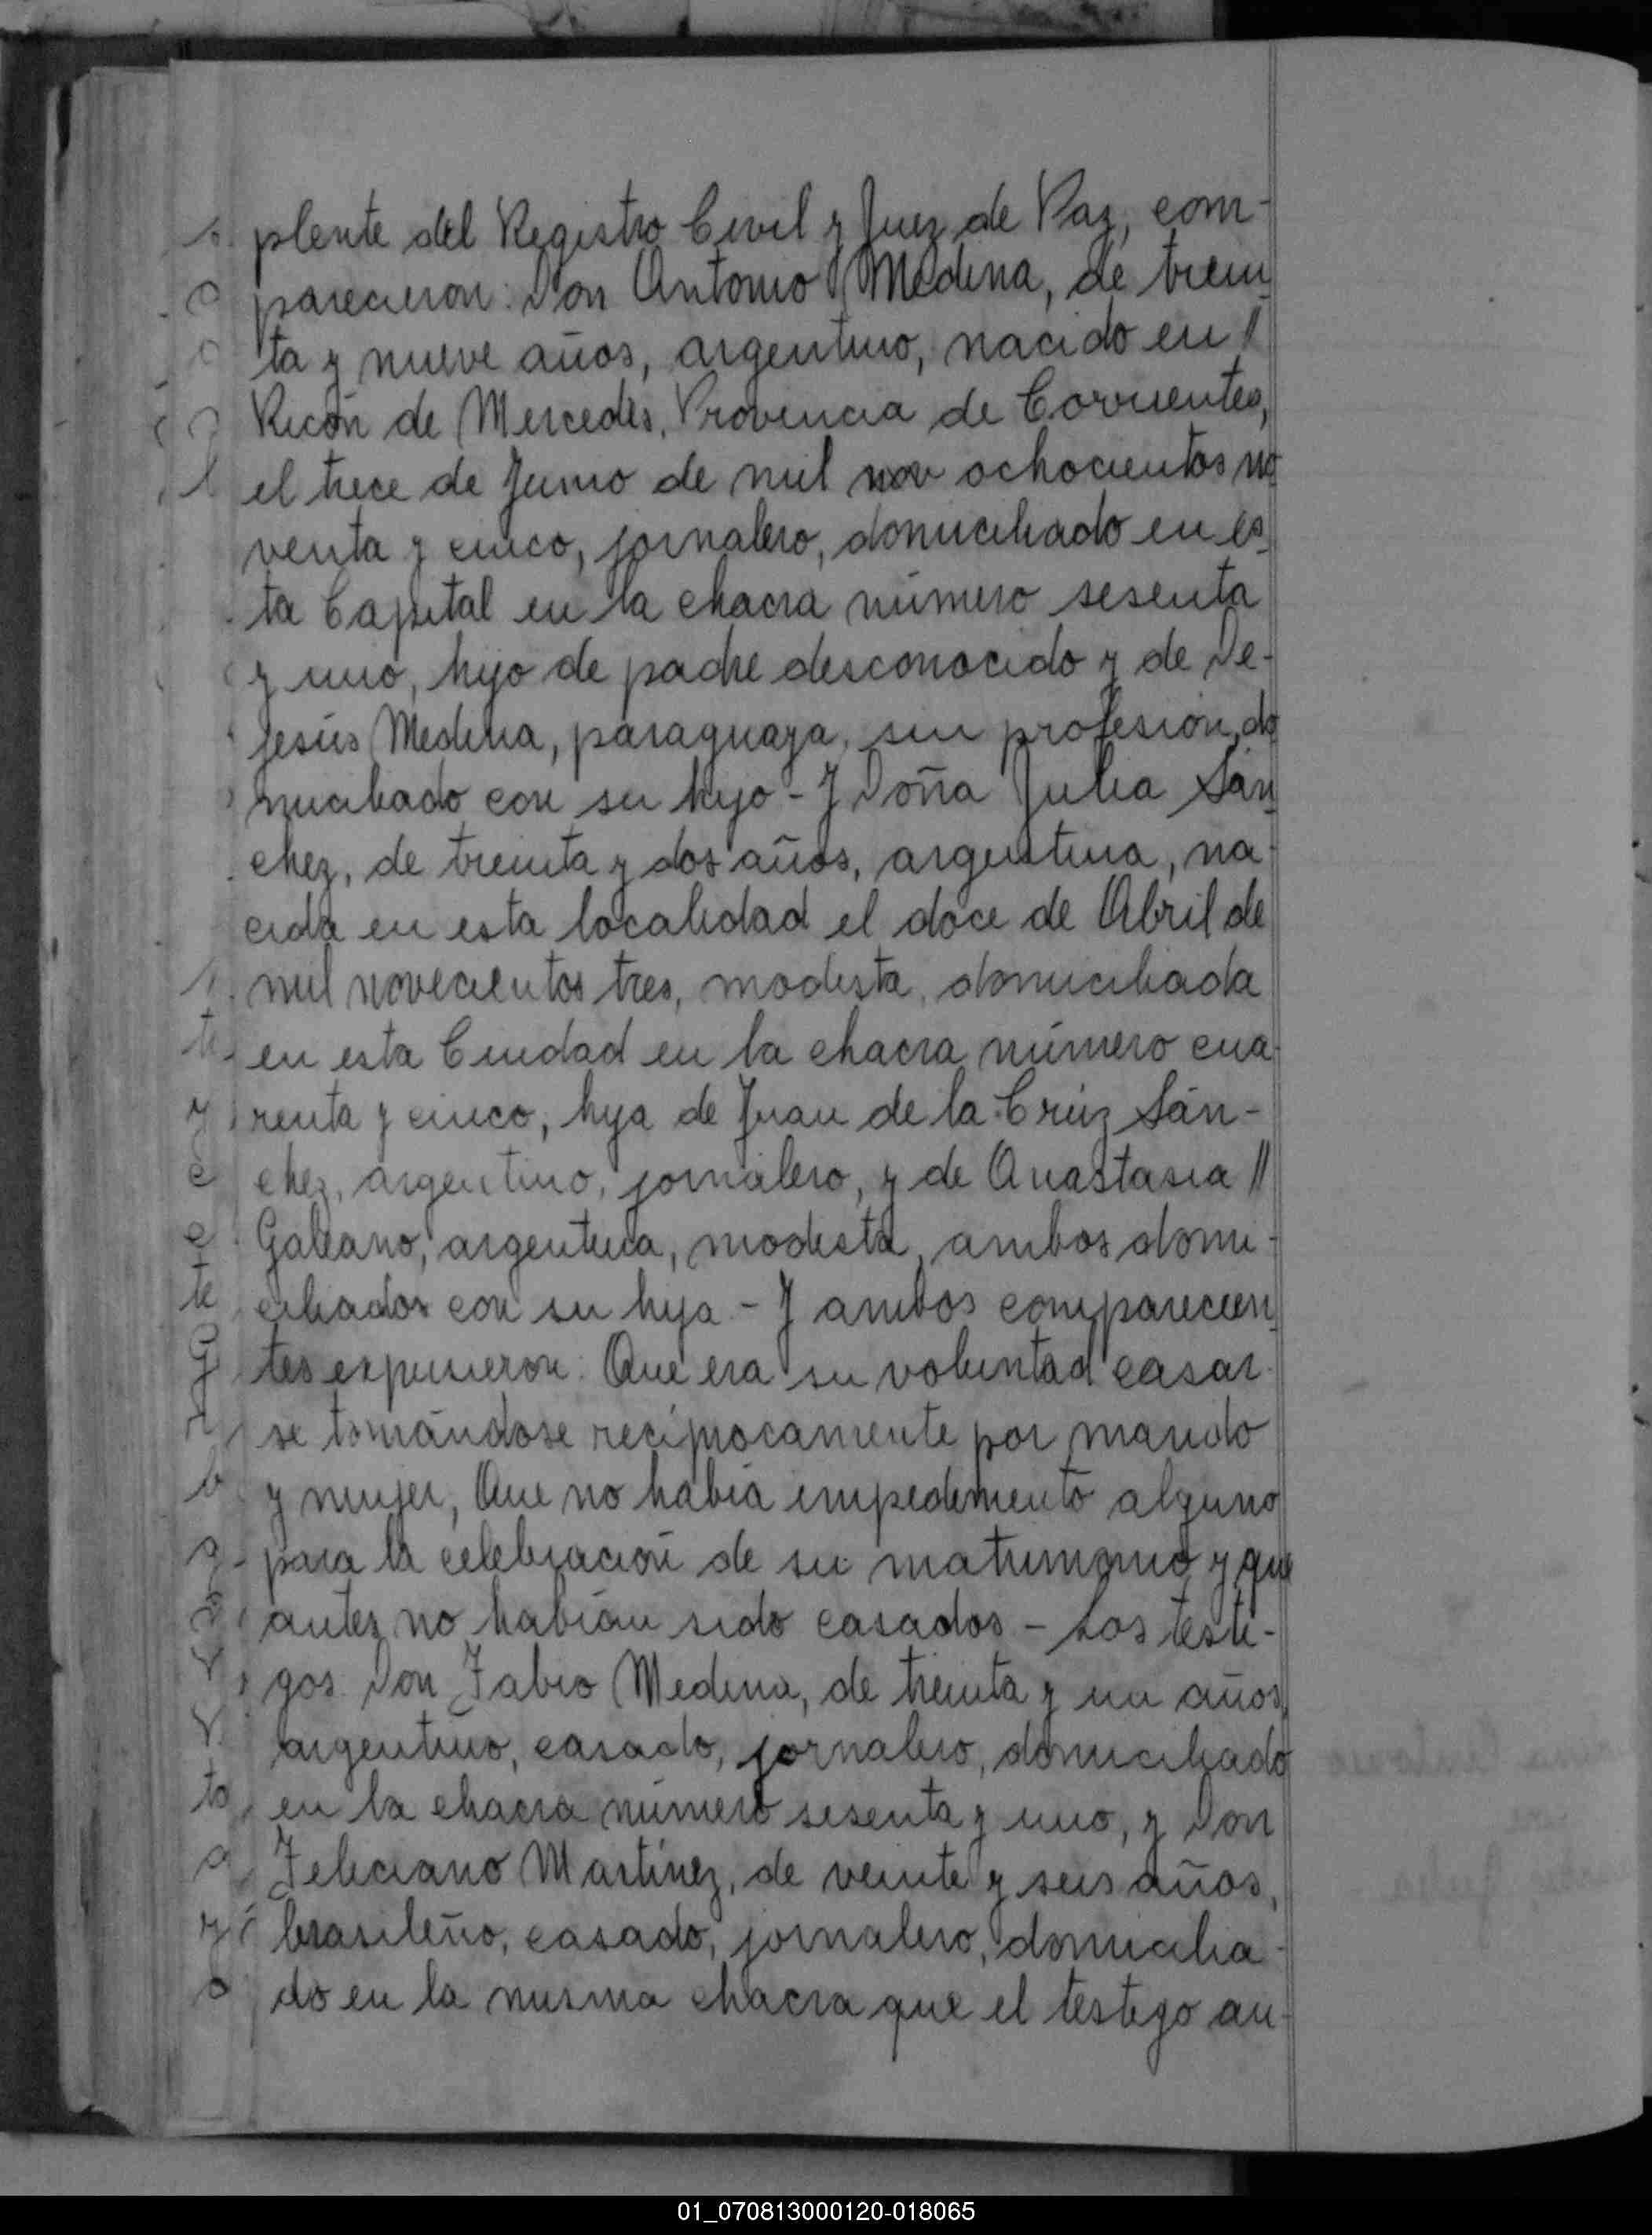 plente del Registro Civil y Juez de Paz, com-
parecieron: Don Antonio Medina, de trein
ta y nueve años, argentino, nacido en //
Ricón de Mercedes, Provincia de Corrientes,
el trece de Junio de mil nov ochocientos no
venta y cinco, jornalero, domiciliado en es
ta Capital en la chacra número sesenta
y uno, hijo de padre desconocido y de De-
jesús Medina, paraguaya, sin profesión, do
miciliado con su hijo - Y Doña Julia Sán
chez, de treinta y dos años, argentina, na-
cida en esta localidad el doce de Abril de
mil novecientos tres, modista, domiciliada
en esta Ciudad en la chacra número cua-
renta y cinco, hija de Juan de la Crúz Sán-
chez, argentino, jornalero, y de Anastasia //
Galeano, argentina, modista, ambos domi-
ciliados con su hija - Y ambos comparecien
tes expusieron: Que era su voluntad casar-
se tomándose recíprocamente por marido
y mujer, Que no había impedimento alguno
para la celebración de su matrimonio y que
antes no habían sido casados - Los testi-
gos Don Fabio Medina, de treinta y un años,
argentino, casado, jornalero, domiciliado
en la chacra número sesenta y uno, y Don
Feliciano Martínez, de veinte y seis años,
brasileño, casado, jornalero, domicilia-
do en la misma chacra que el testigo an-
01_070813000120-018065